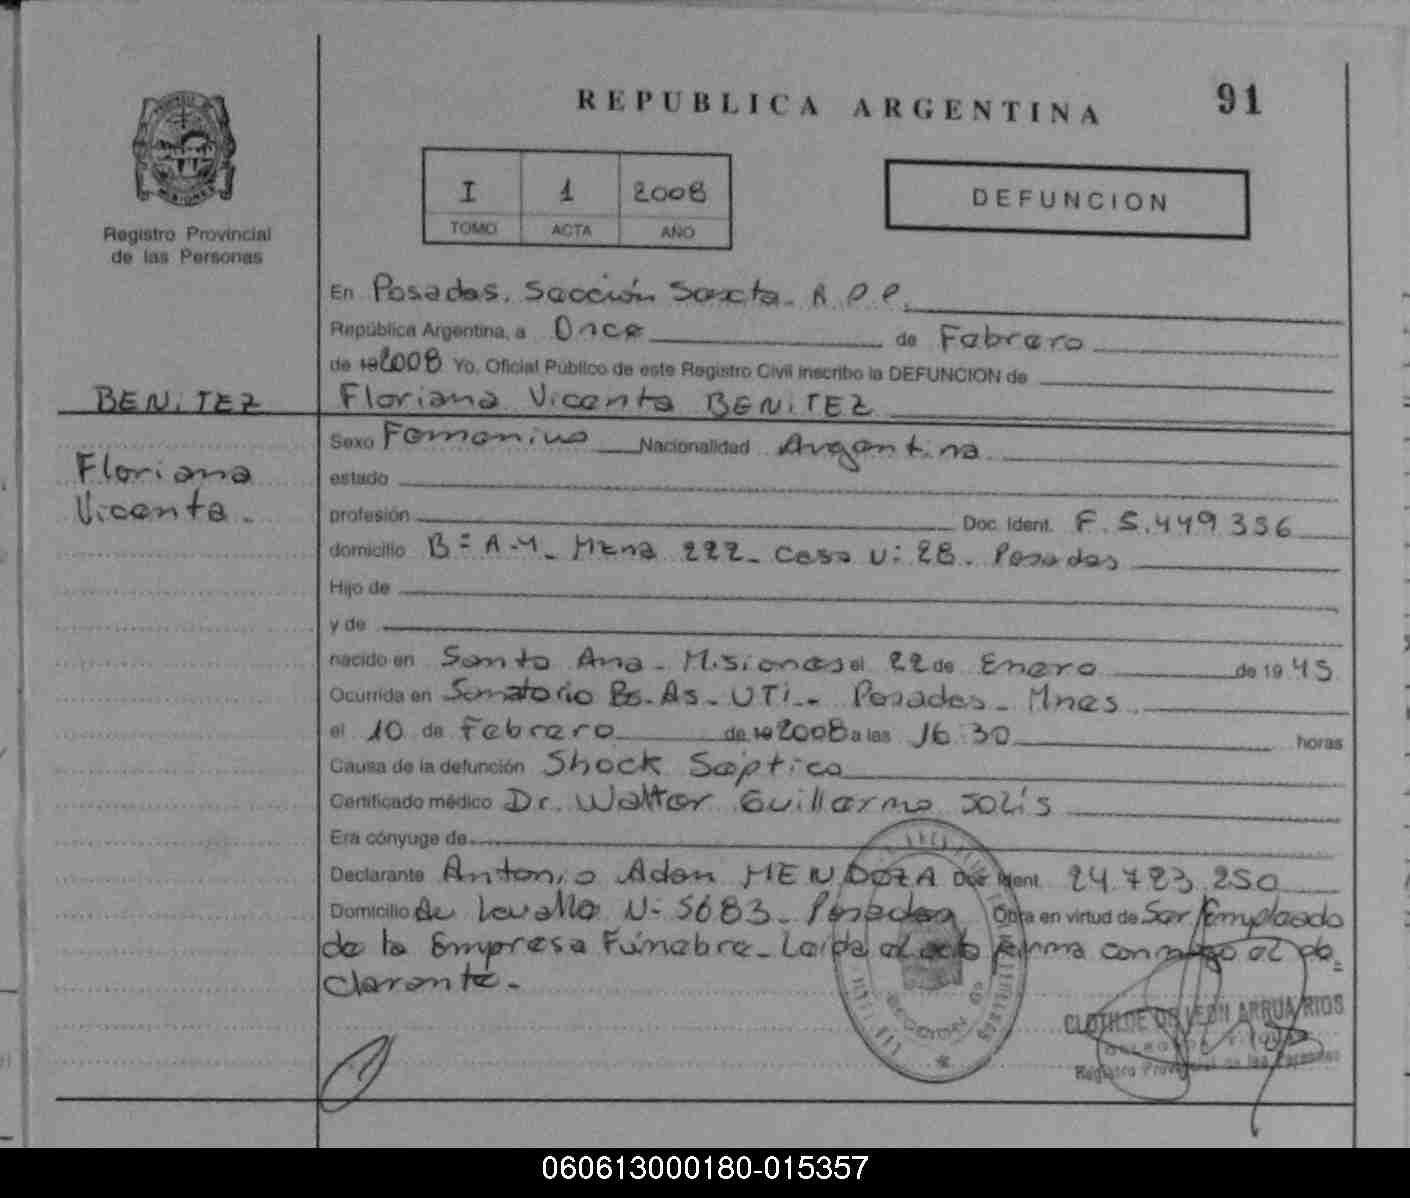 REPUBLICA ARGENTINA
91
I 1 2008
TOMO ACTA AÑO
DEFUNCION
Registro Provincial
de las Personas
En Posadas. Sección Sexta. R. P. P.
República Argentina, a Once de Febrero
de 19 2008 Yo, Oficial Público de este Registro Civil inscribo la DEFUNCION de
BENITEZ
Floriana Vicenta BENITEZ
Floriana
Vicenta.
Sexo Femenino Nacionalidad Argentina
estado
profesión Doc. Ident. F. 5.449.356
domicilio B= A-4. Mzna 222. Casa N: 28. Posadas
Hijo de
y de
nacido en Santa Ana. Misiones el 22 de Enero de 19 45
Ocurrida en Sanatorio Bs. As. UTI.. Posadas. Mnes.
el 10 de Febrero de 19 2008 a las 16:30 horas
Causa de la defunción Shock Septico
Certificado médico Dr. Walter Guillermo SOLÍS
Era cónyuge de
Declarante Antonio Adan MENDOZA Doc. Ident. 24.723.250
Domicilio Av Lavalle N: 5683. Posadas Obra en virtud de Ser Empleado
de la Empresa Fúnebre. Leída el acta firma conmigo el de_
clarante.
CLOTILDE DE LEON ARRUA RIOS
Registro Provincial de las Personas
060613000180-015357